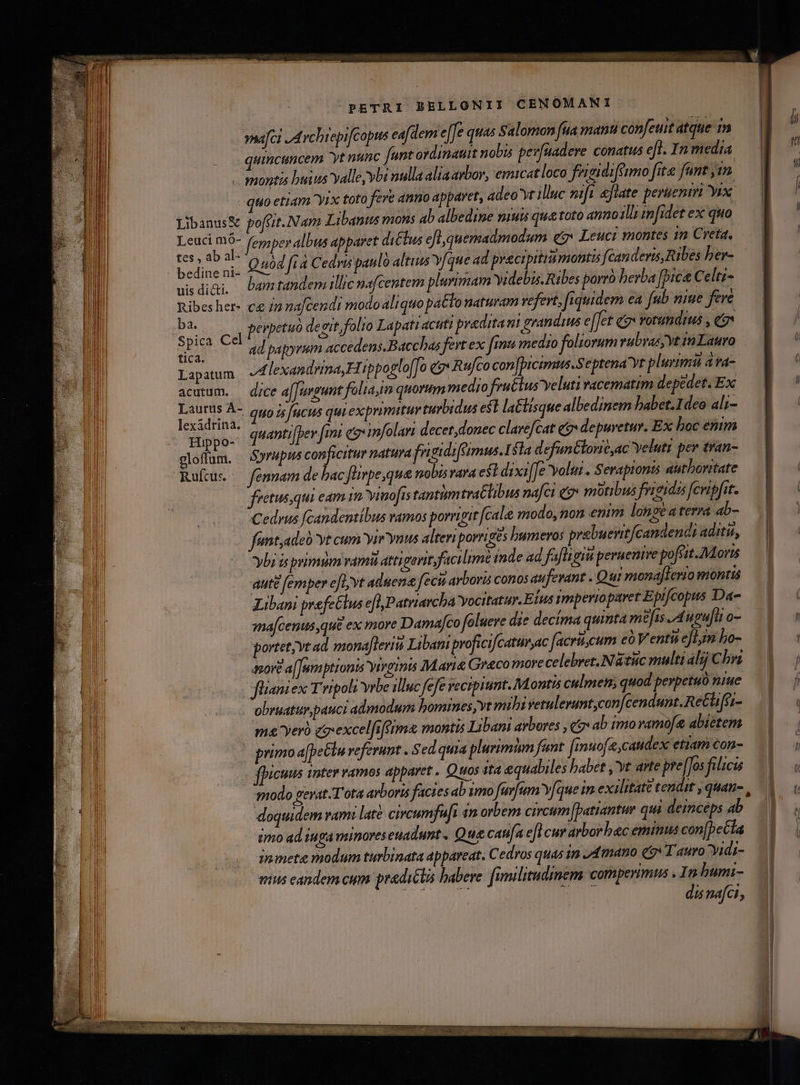 PETRI BELLONII CENOMANI
masci Archiepiscopus easdem esse quas Salomon sua manu conseuit atque in
quincuncem vt nunc sunt ordinauit nobis persuadere conatus est. In media
montis huius valle, vbi nulla alia arbor, emicat loco frigidissimo sitæ sunt, in
quo etiam vix toto ferè anno apparet, adeo vt illuc nisi æstate perueniri vix
Libanus & possit. Nam Libanus mons ab albedine niuis quæ toto anno illi insidet ex quo
Leuci mō- semper albus apparet dictus est, quemadmodum & Leuci montes in Creta.
tes, ab al- Quòd si à Cedris paulò altius vsque ad præcipitiū montis scanderis, Ribes her-
bedine ni- bam tandem illic nascentem plurimam videbis. Ribes porrò herba spicæ Celti-
uis dicti.
Ribes her- cæ in nascendi modo aliquo pacto naturam refert, siquidem ea sub niue ferè
ba. perpetuò degit, folio Lapati acuti præditani grandius esset & rotundius, &
Spica Cel ad papyrum accedens. Bacchas fert ex sinu medio foliorum rubras, vt in Lauro
tica.
Lapatum Alexandrina, Hippoglosso & Rusco conspicimus. Septena vt plurimū à ra-
acutum. dice assurgunt folia, in quorum medio fructus veluti racematim depēdet. Ex
Laurus A- quo is succus qui exprimitur turbidus est lactisque albedinem habet. Ideo ali-
lexādrina. quantisper sini & insolari decet, donec clarescat & depuretur. Ex hoc enim
Hippo-
glossum. Syrupus conficitur natura frigidissimus. Ista defunctorie, ac veluti per tran-
Ruscus. sennam de hac stirpe, quæ nobis rara est dixisse volui. Serapionis authoritate
fretus, qui eam in vinosis tantùm tractibus nasci & motibus frigidis scripsit.
Cedrus scandentibus ramos porrigit scalæ modo, non enim longè a terra ab-
sunt, adeò vt cum vir vnus alteri porrigēs humeros præbuerit scandendi aditū,
vbi is primùm ramū attigerit, facilimè inde ad fastigiū peruenire possit. Moris
autē semper est, vt aduenæ fecū arboris conos auferant. Qui monasterio montis
Libani præfectus est, Patriarcha vocitatur. Eius imperio paret Episcopus Da-
mascenus, quē ex more Damasco soluere die decima quinta mēsis Augusti o-
portet, vt ad monasteriū Libani proficiscatur, ac sacrū, cum eò Ventū est, in ho-
norē assumptionis virginis Mariæ Græco more celebret. Nā tūc multi alij Chri
stiani ex Tripoli vrbe illuc sese recipiunt. Montis culmen, quod perpetuò niue
obruatur, pauci admodum homines, vt mihi retulerunt, conscendunt. Rectissi-
mæ verò & excelsissimæ montis Libani arbores, & ab imo ramosæ abietem
primo aspectu referunt. Sed quia plurimùm sunt sinuosæ, caudex etiam con-
spicuus inter ramos apparet. Quos ita æquabiles habet, vt arte pressos filicis
modo gerat. Tota arboris facies ab imo sursum vsque in exilitatē tendit, quan-
doquidem rami latè circumfusi in orbem circumspatiantur qui deinceps ab
imo ad iuga minores euadunt. Quæ causa est cur arbor hæc eminus conspecta
in metæ modum turbinata appareat. Cedros quas in Amano & Tauro vidi-
mus eandem cum prædictis habere similitudinem comperimus. In humi-
dis nasci,